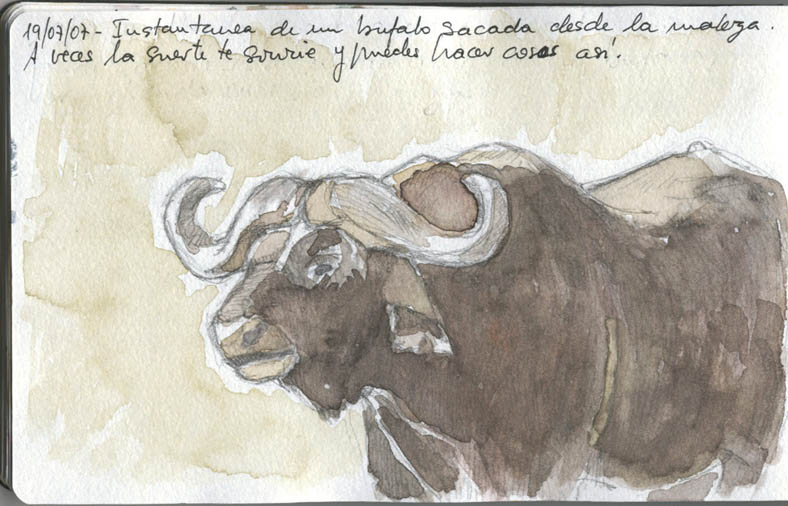 19/07/07 - Instantanea de un búfalo sacada desde la maleza.
A veces la suerte te sonrie y puedes hacer cosas así.